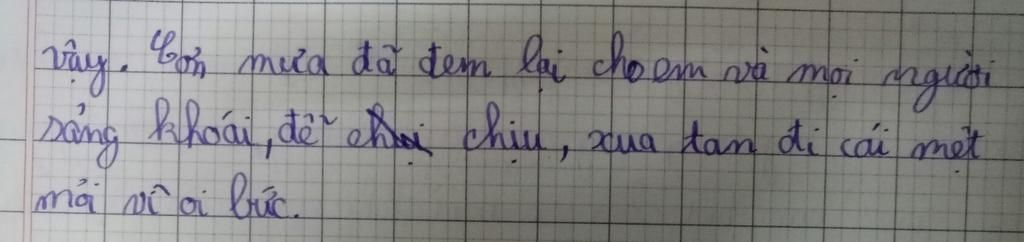 vậy. Cơn mưa đã đem lại cho em và mọi người
sảng khoái, dễ chịu, xua tan đi cái mệt
mỏi vì oi bức.